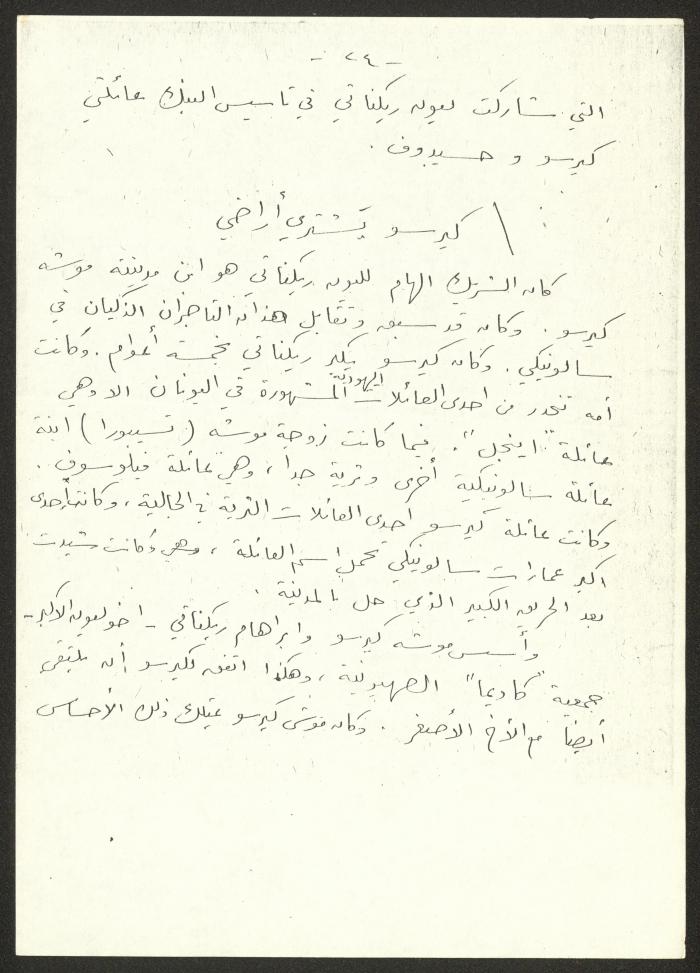 - ٢٤ -
التي شاركت ليون ريكناتي في تاسيس البنك عائلتي
كيرسو و حسيدوف .
كيرسو يشتري أراضي
كان الشريك الهام لليون ريكناتي هو ابن مدينته موشه
كيرسو . وكان قد سبق وتقابل هذان التاجران الذكيان في
سالونيكي . وكان كيرسو يكبر ريكناتي بخمسة أعوام . وكانت
أمه تنحدر من احدى العائلات اليهودية المشهورة في اليونان الا وهي
عائلة "اينجل" . فيما كانت زوجة موشه ( تسيبورا ) ابنة
عائلة سالونيكية أخرى وثرية جدا ، وهي عائلة فيلوسوف .
وكانت عائلة كيرسو احدى العائلات الثرية في الجالية ، وكانت احدى
اكبر عمارات سالونيكي تحمل اسم العائلة ، وهي وكانت شيدت
بعد الحريق الكبير الذي حل بالمدينة .
وأسس موشه كيرسو وابراهام ريكناتي - اخو ليون الاكبر -
جمعية "كاديما" الصهيونية ، وهكذا اتفق لكيرسو أن يلتقي
أيضا مع الأخ الأصغر . وكان موشي كيرسو يمتلك ذلك الأحساس